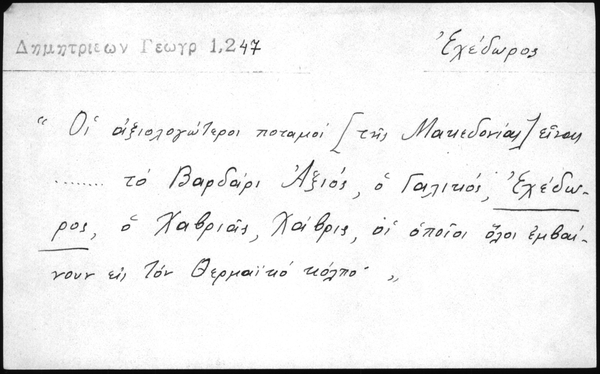 Δημητριεων Γεωγρ 1,247
Ἐχέδωρος
“ Οἱ ἀξιολογώτεροι ποταμοί [τῆς Μακεδονίας] εἶναι
........ τό Βαρδάρι Ἀξιός, ὁ Γαλικός, Ἐχέδω-
ρος, ὁ Χαβριᾶς, Χάβρις, οἱ ὁποῖοι ὅλοι ἐμβαί-
νουν εἰς τόν Θερμαϊκό κόλπο· „